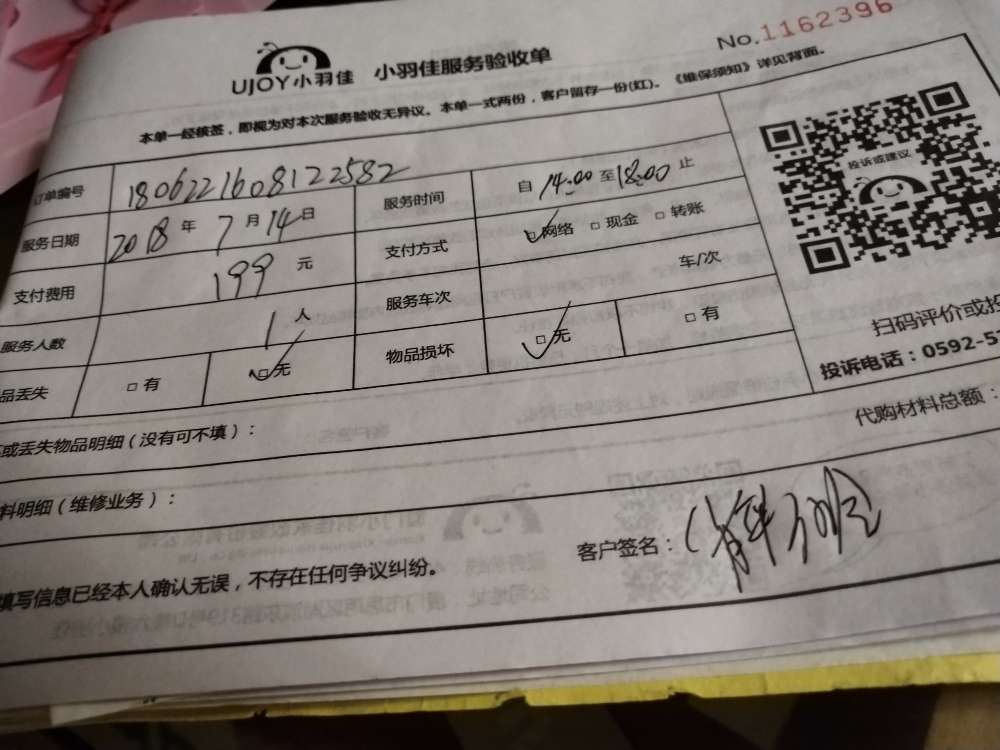 No.1162396
UJOY小羽佳 小羽佳服务验收单
本单一经核签，即视为对本次服务验收无异议。本单一式两份，客户留存一份(红)。《维保须知》详见背面。
订单编号 1806221608122582 服务时间 自 14:00 至 18:00 止
服务日期 2018 年 7 月 14 日 支付方式 □网络 □现金 □转账
支付费用 199 元 服务车次 车/次
服务人数 1 人 物品损坏 □无 □有
品丢失 □有 □无
投诉或建议
扫码评价或投
投诉电话：0592-5
或丢失物品明细（没有可不填）：
代购材料总额：
料明细（维修业务）：
客户签名：
填写信息已经本人确认无误，不存在任何争议纠纷。